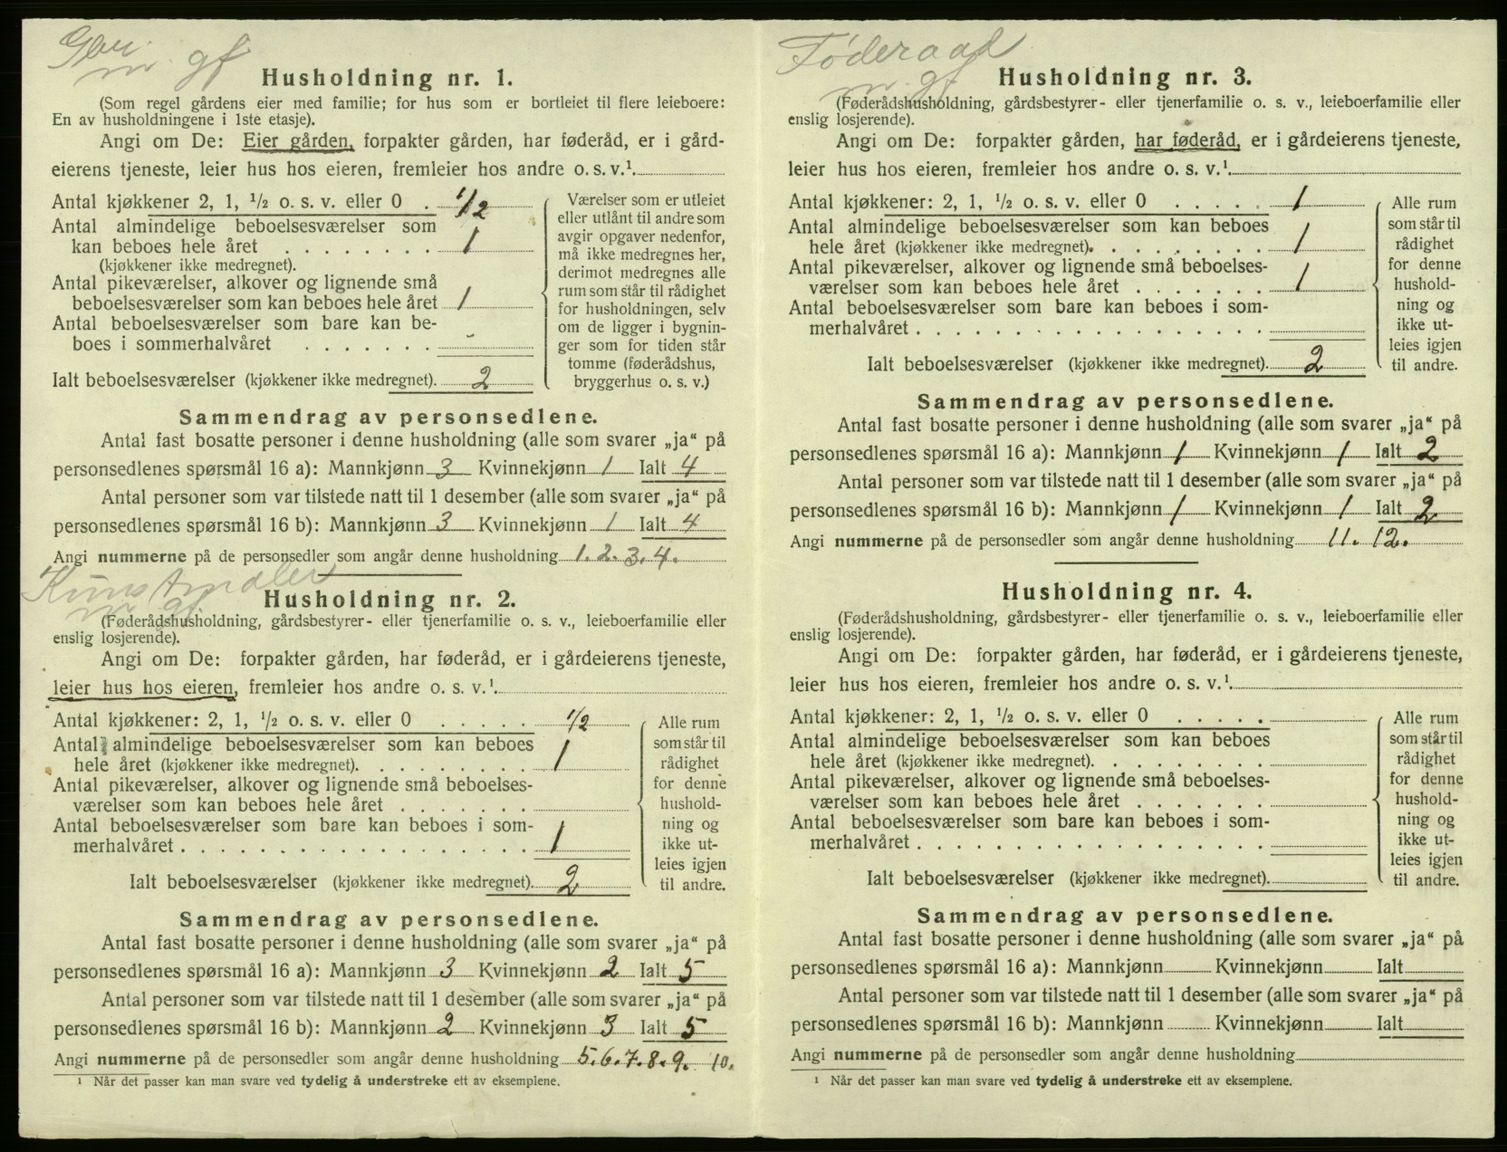 Gbr.
m. gf
Husholdning nr. 1.
(Som regel gårdens eier med familie; for hus som er bortleiet til flere leieboere:
En av husholdningene i 1ste etasje).
Angi om De: Eier gården, forpakter gården, har føderåd, er i gård-
eierens tjeneste, leier hus hos eieren, fremleier hos andre o. s. v.¹
Antal kjøkkener 2, 1, ½ o. s. v. eller 0 . 1/2
Antal almindelige beboelsesværelser som
kan beboes hele året . . . . . . . 1
(kjøkkener ikke medregnet).
Antal pikeværelser, alkover og lignende små
beboelsesværelser som kan beboes hele året 1
Antal beboelsesværelser som bare kan be-
boes i sommerhalvåret . . . . . . . -
Ialt beboelsesværelser (kjøkkener ikke medregnet). 2
Værelser som er utleiet
eller utlånt til andre som
avgir opgaver nedenfor,
må ikke medregnes her,
derimot medregnes alle
rum som står til rådighet
for husholdningen, selv
om de ligger i bygnin-
ger som for tiden står
tomme (føderådshus,
bryggerhus o. s. v.)
Sammendrag av personsedlene.
Antal fast bosatte personer i denne husholdning (alle som svarer „ja“ på
personsedlenes spørsmål 16 a): Mannkjønn 3 Kvinnekjønn 1 Ialt 4
Antal personer som var tilstede natt til 1 desember (alle som svarer „ja“ på
personsedlenes spørsmål 16 b): Mannkjønn 3 Kvinnekjønn 1 Ialt 4
Angi nummerne på de personsedler som angår denne husholdning 1. 2. 3. 4.
Kunstmaler
m. gf.
Husholdning nr. 2.
(Føderådshusholdning, gårdsbestyrer- eller tjenerfamilie o. s. v., leieboerfamilie eller
enslig losjerende).
Angi om De: forpakter gården, har føderåd, er i gårdeierens tjeneste,
leier hus hos eieren, fremleier hos andre o. s. v.¹
Antal kjøkkener: 2, 1, ½ o. s. v. eller 0 . . . . . 1/2
Antal almindelige beboelsesværelser som kan beboes
hele året (kjøkkener ikke medregnet). . . . . . . . . 1
Antal pikeværelser, alkover og lignende små beboelses-
værelser som kan beboes hele året . . . . . . .
Antal beboelsesværelser som bare kan beboes i som-
merhalvåret . . . . . . . . . . . . . . . . . . 1
Ialt beboelsesværelser (kjøkkener ikke medregnet). 2
Alle rum
som står til
rådighet
for denne
hushold-
ning og
ikke ut-
leies igjen
til andre.
Sammendrag av personsedlene.
Antal fast bosatte personer i denne husholdning (alle som svarer „ja“ på
personsedlenes spørsmål 16 a): Mannkjønn 3 Kvinnekjønn 2 Ialt 5
Antal personer som var tilstede natt til 1 desember (alle som svarer „ja“ på
personsedlenes spørsmål 16 b): Mannkjønn 2 Kvinnekjønn 3 Ialt 5
Angi nummerne på de personsedler som angår denne husholdning 5. 6. 7. 8. 9. 10.
¹ Når det passer kan man svare ved tydelig å understreke ett av eksemplene.
Føderaad
m. gf
Husholdning nr. 3.
(Føderådshusholdning, gårdsbestyrer- eller tjenerfamilie o. s. v., leieboerfamilie eller
enslig losjerende).
Angi om De: forpakter gården, har føderåd, er i gårdeierens tjeneste,
leier hus hos eieren, fremleier hos andre o. s. v.¹
Antal kjøkkener: 2, 1, ½ o. s. v. eller 0 . . . . . 1
Antal almindelige beboelsesværelser som kan beboes
hele året (kjøkkener ikke medregnet). . . . . . . . . 1
Antal pikeværelser, alkover og lignende små beboelses-
værelser som kan beboes hele året . . . . . . . 1
Antal beboelsesværelser som bare kan beboes i som-
merhalvåret . . . . . . . . . . . . . . . . . .
Ialt beboelsesværelser (kjøkkener ikke medregnet). 2
Alle rum
som står til
rådighet
for denne
hushold-
ning og
ikke ut-
leies igjen
til andre.
Sammendrag av personsedlene.
Antal fast bosatte personer i denne husholdning (alle som svarer „ja“ på
personsedlenes spørsmål 16 a): Mannkjønn 1 Kvinnekjønn 1 Ialt 2
Antal personer som var tilstede natt til 1 desember (alle som svarer „ja“ på
personsedlenes spørsmål 16 b): Mannkjønn 1 Kvinnekjønn 1 Ialt 2
Angi nummerne på de personsedler som angår denne husholdning 11. 12.
Husholdning nr. 4.
(Føderådshusholdning, gårdsbestyrer- eller tjenerfamilie o. s. v., leieboerfamilie eller
enslig losjerende).
Angi om De: forpakter gården, har føderåd, er i gårdeierens tjeneste,
leier hus hos eieren, fremleier hos andre o. s. v.¹
Antal kjøkkener: 2, 1, ½ o. s. v. eller 0 . . . . .
Antal almindelige beboelsesværelser som kan beboes
hele året (kjøkkener ikke medregnet). . . . . . . . .
Antal pikeværelser, alkover og lignende små beboelses-
værelser som kan beboes hele året . . . . . . .
Antal beboelsesværelser som bare kan beboes i som-
merhalvåret . . . . . . . . . . . . . . . . . .
Ialt beboelsesværelser (kjøkkener ikke medregnet).
Alle rum
som står til
rådighet
for denne
hushold-
ning og
ikke ut-
leies igjen
til andre.
Sammendrag av personsedlene.
Antal fast bosatte personer i denne husholdning (alle som svarer „ja“ på
personsedlenes spørsmål 16 a): Mannkjønn Kvinnekjønn Ialt
Antal personer som var tilstede natt til 1 desember (alle som svarer „ja“ på
personsedlenes spørsmål 16 b): Mannkjønn Kvinnekjønn Ialt
Angi nummerne på de personsedler som angår denne husholdning
¹ Når det passer kan man svare ved tydelig å understreke ett av eksemplene.